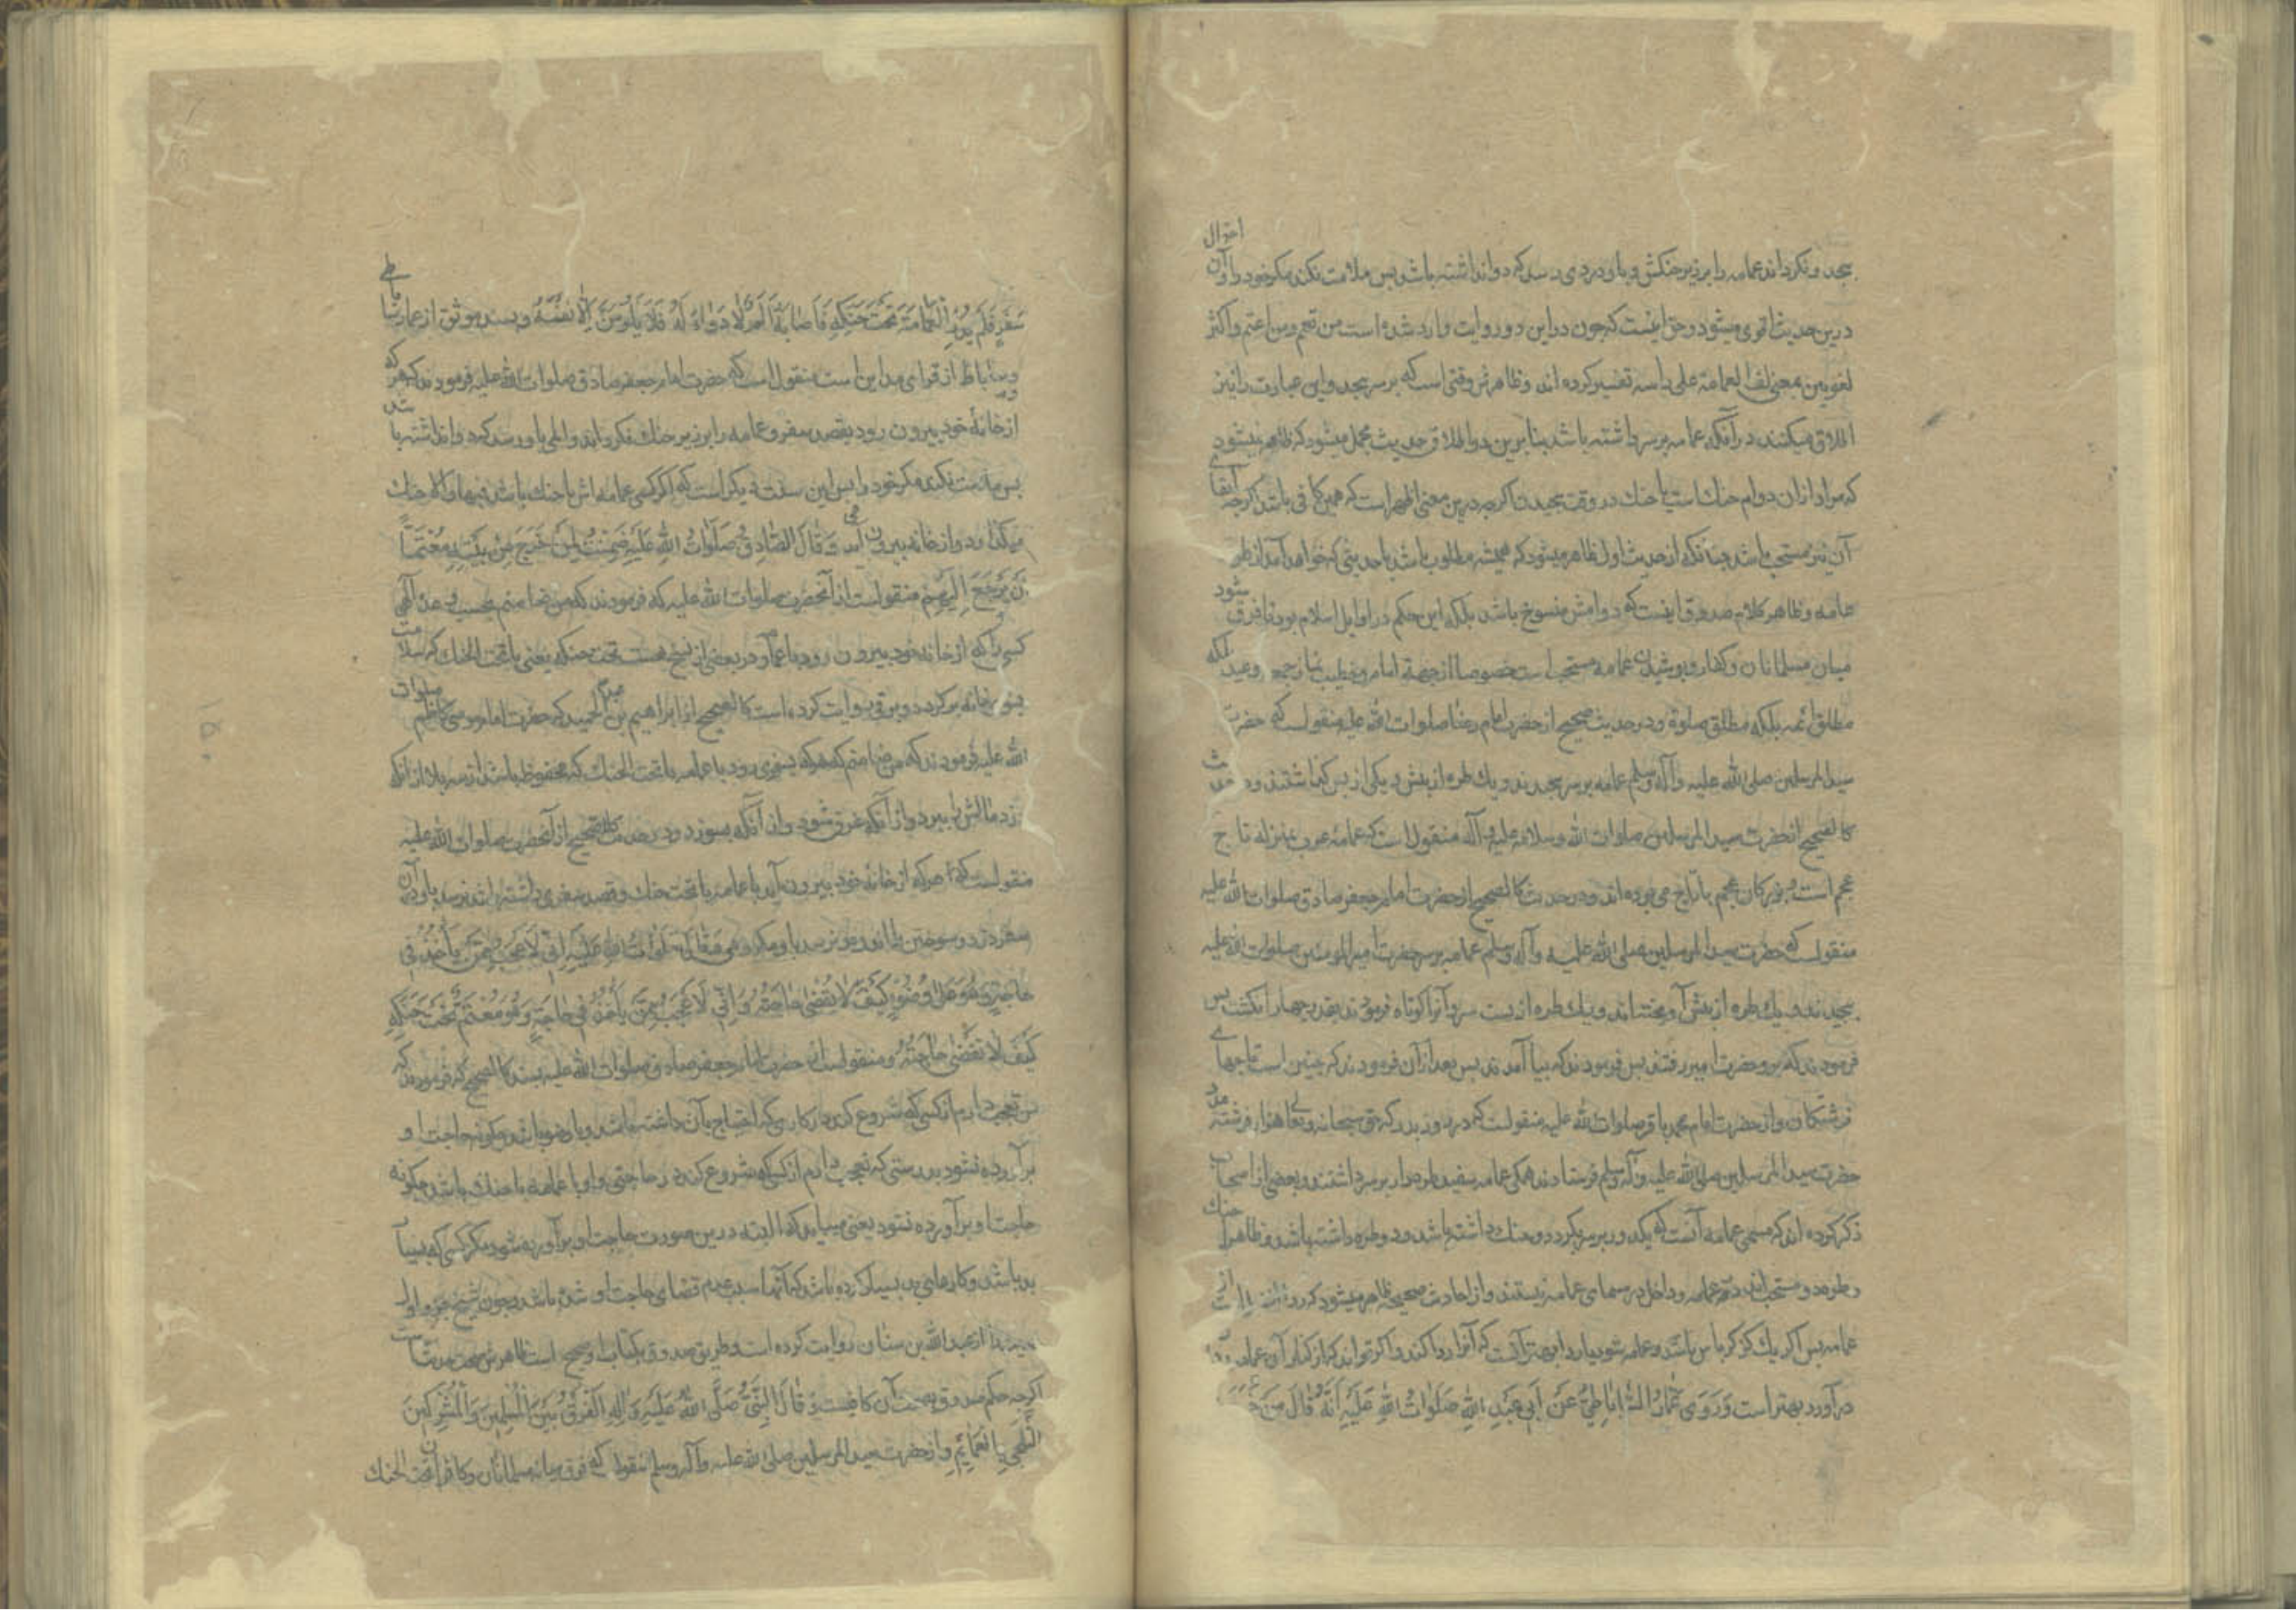 بپیچد و نکرداند عمامه را بر زیر حنکش و باو دردی رسد که دوا نداشته باشد پس ملامت نکند مکر خود را و آن احوال
درین حدیث اقوی میشود و حق اینست که چون در این دو روایت وارد شده است من تعمم و من اعتم و اکثر
لغویین بمعنی لف العمامة علی راسه تفسیر کرده اند و ظاهرش وقتی است که بر سر پیچد و این عبارت را نیز
اطلاق میکنند در آنکه عمامه بر سر داشته باشد بنا برین دو اطلاق حدیث مجمل میشود که ظاهر نمیشود
که مراد از ان دوام حنک است یا حنک در وقت پیچیدن اکرچه درین معنی اظهر است که همین کافی باشد اکرچه ابقای
آن نیز مستحب باشد چنانکه از حدیث اول ظاهر میشود که همیشه مطلوب باشد یا حدیثی که خواهد آمد از طرق
عامه و ظاهر کلام صدوق اینست که دوامش منسوخ باشد بلکه این حکم در اوایل اسلام بود تا فرق شود
میان مسلمانان و کفار و پوشیدن عمامه مستحب است خصوصا از جهة امام و خطیب نماز جمعه و عید بلکه
مطلق ائمه بلکه مطلق صلوة و در حدیث صحیح از حضرت امام رضا صلوات الله علیه منقولست که حضرت
سید المرسلین صلی الله علیه وآله وسلم عمامه بر سر پیچیدند و یك طره از پیش و یکی از پس کذاشتند و در حدیث
کالصحیح از حضرت سید المرسلین صلوات الله وسلامه علیه وآله منقول است که عمامهٔ عرب بمنزله تاج
عجم است و بزرکان عجم با تاج می بوده اند و در حدیث کالصحیح از حضرت امام جعفر صادق صلوات الله علیه
منقولست که حضرت سید المرسلین صلی الله علیه وآله وسلم عمامه بر سر حضرت امیر المومنین صلوات الله علیه
پیچیدند و یك طره از پیش آویختند و یك طره از پست سر و آنرا کوتاه فرمودند بقدر چهار انکشت پس
فرمودند که برو حضرت امیر رفتند پس فرمودند که بیا آمدند پس بعد از آن فرمودند که چنین است تاجهای
فرشتکان و از حضرت امام محمد باقر صلوات الله علیه منقولست که در روز بدر که حق سبحانه و تعالی هزار فرشته مدد
حضرت سید المرسلین صلی الله علیه وآله وسلم فرستادند همکی عمامه سفید طره دار بر سر داشتند و بعضی از اصحاب
ذکر کرده اند که مسمی عمامه آنست که یکدور بر سر بکردد و حنك داشته باشد و دو طره داشته باشد و ظاهرا حنك
و طره دو مستحب اند در عمامه و داخل در مسمای عمامه نیستند و از احادیث صحیحه ظاهر میشود که
عمامه پس اکر یك کز کرباس باشد و عمامه شود با ردا بهتر آنست که آنرا ردا کند و اکر تواند که از کنار آن عمامه
در آورد بهتر است وَرَوَی عَمَّارُ السَّابَاطِيُّ عَنْ اَبِي عَبْدِ اللهِ صَلَوَاتُ اللهِ عَلَيْهِ اَنَّهُ قَالَ مَنْ خَرَجَ
سَفَرٍ فَلَمْ يُدِرِ الْعِمَامَةَ تَحْتَ حَنَكِهِ فَاَصَابَهُ اَلَمٌ لَا دَوَاءَ لَهُ فَلَا يَلُومَنَّ اِلَّا نَفْسَهُ و بسند موثق از عمار ساباطی
و ساباط از قرای مداین است منقول است که حضرت امام جعفر صادق صلوات الله علیه فرمودند که هر که
از خانهٔ خود بیرون رود بقصد سفر و عمامه را بر زیر حنك نکرداند و المی باو رسد که دوا نداشته باشد
پس ملامت نکند مکر خود را پس این سنت دیکر است که اکر کسی عمامه اش با حنك باشد فبها والا حنك
میکذارد و از خانه بیرون می آید وَقَالَ الصَّادِقُ صَلَوَاتُ اللهِ عَلَيْهِ ضَمِنْتُ لِمَنْ خَرَجَ مِنْ بَيْتِهِ مُعْتَمًّا
اَنْ يَرْجِعَ اِلَيْهِمْ منقولست از آنحضرت صلوات الله علیه که فرمودند که من ضامنم بحسب وعدهٔ الٓهی
کسی را که از خانه خود بیرون رود با عمامه و در بعضی از نسخ هست تحت حنکه یعنی با تحت الحنك که سلامت
بسوی خانه بر کردد و برقی روایت کرده است کالصحیح از ابراهیم بن عبد الحمید که حضرت امام موسی کاظم صلوات
الله علیه فرمودند که من ضامنم که هر که بسفری رود با عمامه با تحت الحنك که محفوظ باشد از سه بلا از انکه
دزد مالش را ببرد و از آنکه غرق شود و از آنکه بسوزد و در حدیث کالصحیح از آنحضرت صلوات الله علیه
منقولست که هر که از خانه خود بیرون آید با عمامه با تحت حنك و قصد سفری داشته باشد نرسد باو در آن
سفر دزد و سوختن و مکروهی وَقَالَ صَلَوَاتُ اللهِ عَلَيْهِ اِنِّي لَاَعْجَبُ مِمَّنْ يَأْخُذُ فِي
حَاجَةٍ وَهُوَ عَلَى وُضُوءٍ كَيْفَ لَا تُقْضَى حَاجَتُهُ وَاِنِّي لَاَعْجَبُ مِمَّنْ يَأْخُذُ فِي حَاجَةٍ وَهُوَ مُعْتَمٌّ تَحْتَ حَنَكِهِ
كَيْفَ لَا تُقْضَى حَاجَتُهُ و منقولست از حضرت امام جعفر صادق صلوات الله علیه بسند کالصحیح که فرمودند که
من تعجب دارم از کسی که شروع کند در کاری که احتیاج بآن داشته باشد و با وضو باشد چکونه حاجت او
بر آورده نشود بدرستی که تعجب دارم از کسی که شروع کند در حاجتی و او با عمامه با حنك باشد چکونه
حاجت او بر آورده نشود یعنی میباید که البته درین صورت حاجت او بر آورده شود مکر کسی که بسیار
بد باشد و کارهای بد بسیار کرده باشد که آنها سبب عدم قضای حاجت او شده باشد و چون شیخ جزو اول
حدیث را از عبد الله بن سنان روایت کرده است و طریق صدوق بکتاب او صحیح است ظاهرش صحت حدیث است
اکرچه حکم صدوق بصحت آن کافیست وَقَالَ النَّبِيُّ صَلَّى اللهُ عَلَيْهِ وَاٰلِهِ اَلْفَرْقُ بَيْنَ الْمُسْلِمِينَ وَالْمُشْرِكِينَ
التَّلَحِّي بِالْعَمَائِمِ و از حضرت سید المرسلین صلی الله علیه وآله وسلم منقولست که فرق میانه مسلمانان و کافران تحت الحنك
۱۵۰